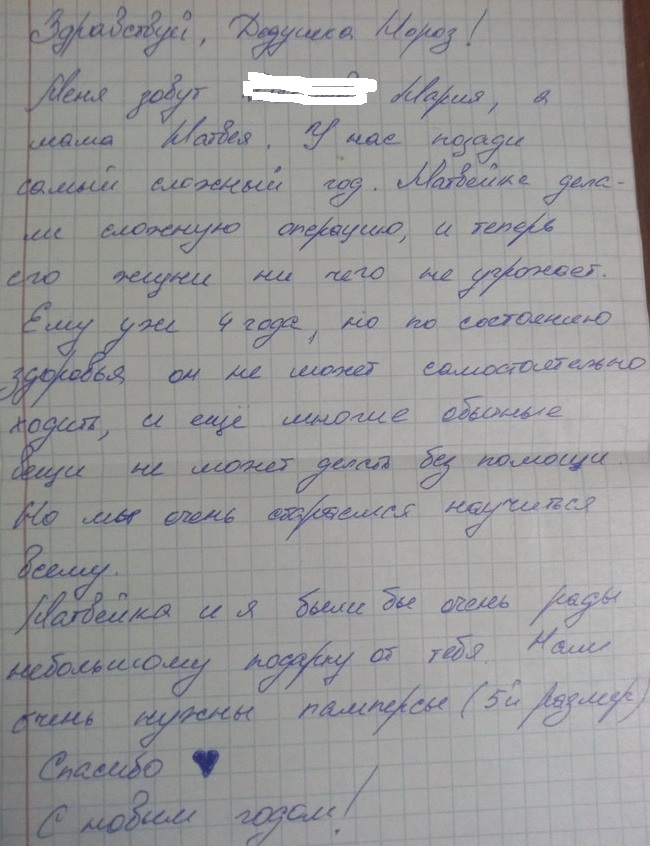 Здравствуй, Дедушка Мороз!
Меня зовут Мария, я
мама Матвея. У нас позади
самый сложный год. Матвейке дела-
ли сложную операцию, и теперь
его жизни ни чего не угрожает.
Ему уже 4 года, но по состоянию
здоровья он не может самостоятельно
ходить, и ещё многие обычные
вещи не может делать без помощи.
Но мы очень стараемся научиться
всему.
Матвейка и я были бы очень рады
небольшому подарку от тебя. Нам
очень нужны памперсы (5й размер)
Спасибо
С новым годом!